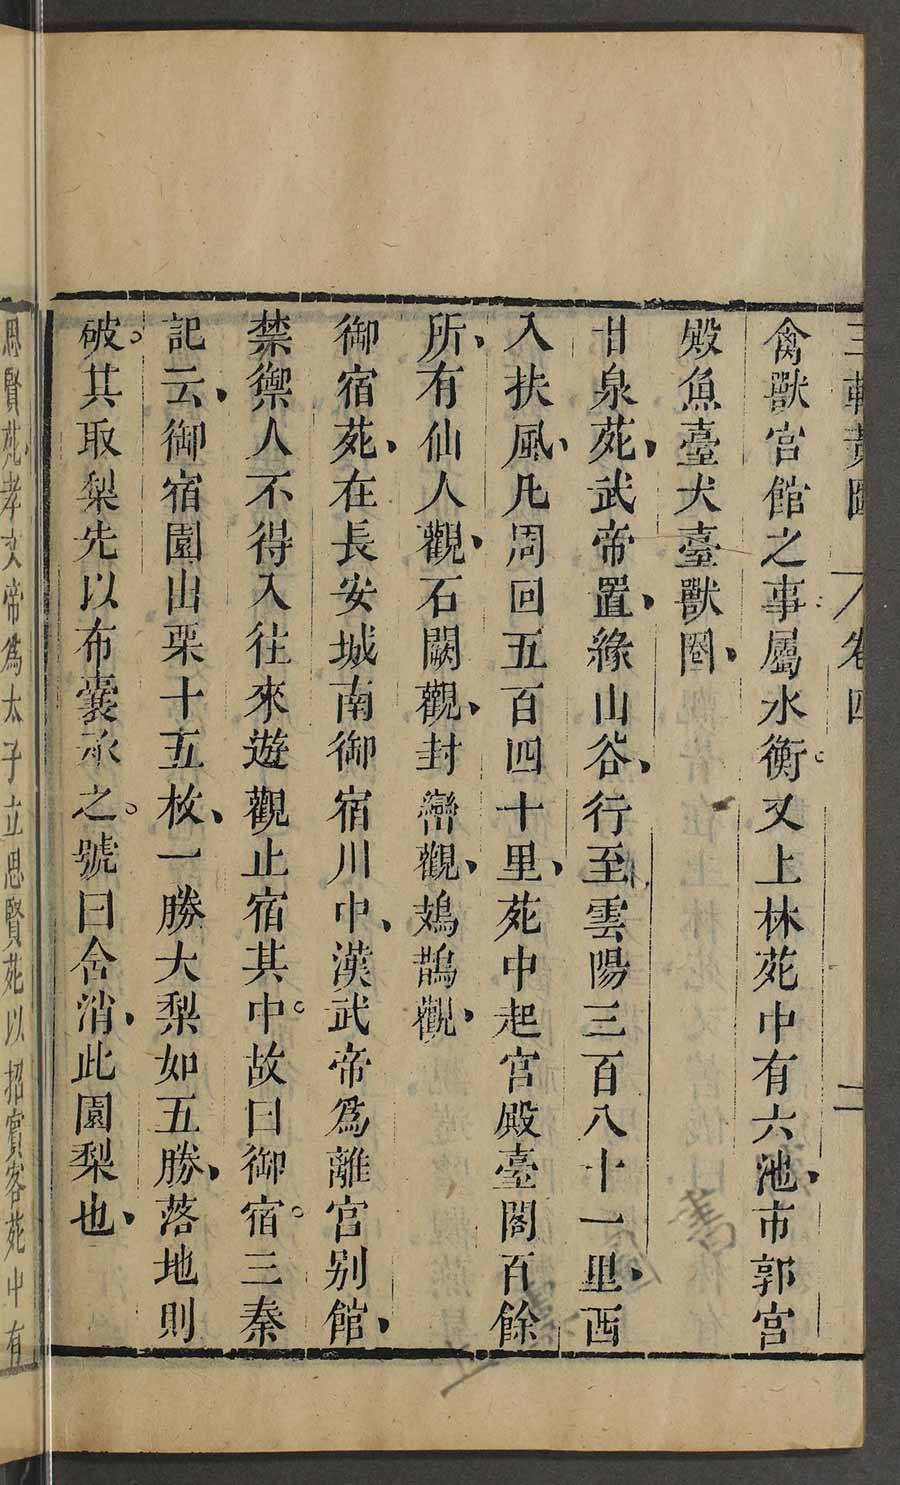 三輔黃圖 卷四 二
禽獸宮館之事屬水衡。又上林苑中有六池、市郭宮
殿魚臺犬臺獸圈、
甘泉苑、武帝置、緣山谷、行至雲陽三百八十一里、西
入扶風、凡周回五百四十里、苑中起宮殿臺閣百餘
所、有仙人觀、石闕觀、封巒觀、鳷鵲觀、
御宿苑、在長安城南御宿川中、漢武帝爲離宮别館、
禁禦人不得入往來遊觀止宿其中。故曰御宿。三秦
記云、御宿園出栗十五枚、一勝大梨如五勝、落地則
破。其取梨先以布囊承之。號曰含消、此園梨也、
思賢苑、孝文帝爲太子立思賢苑以招賓客苑中有